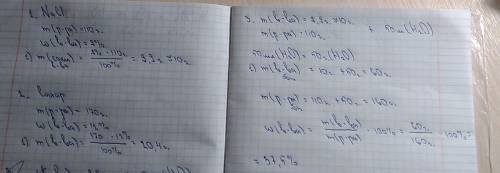 1. NaCl
m(р-ра)=110г.
w(в-ва)=9%
1) m(соли)= 9% · 110г. / 100% = 9,9г ≈10г.
2. Сахар
m(р-ра)=170г.
w(в-ва)=12%
1) m(в-ва)= 170 · 12% / 100% = 20,4г.
3. m(в-ва)=9,9г ≈10г.
m(р-ра)=110г.
50мл(H₂O)
50мл(H₂O)=50г(H₂O)
1) m(в-ва)= 10г +50=60г.
m(р-ра)= 110г +50=160г.
w(в-ва)= m(в-ва) / m(р-ра) · 100%= 60г. / 160г. · 100%=
=37,5%